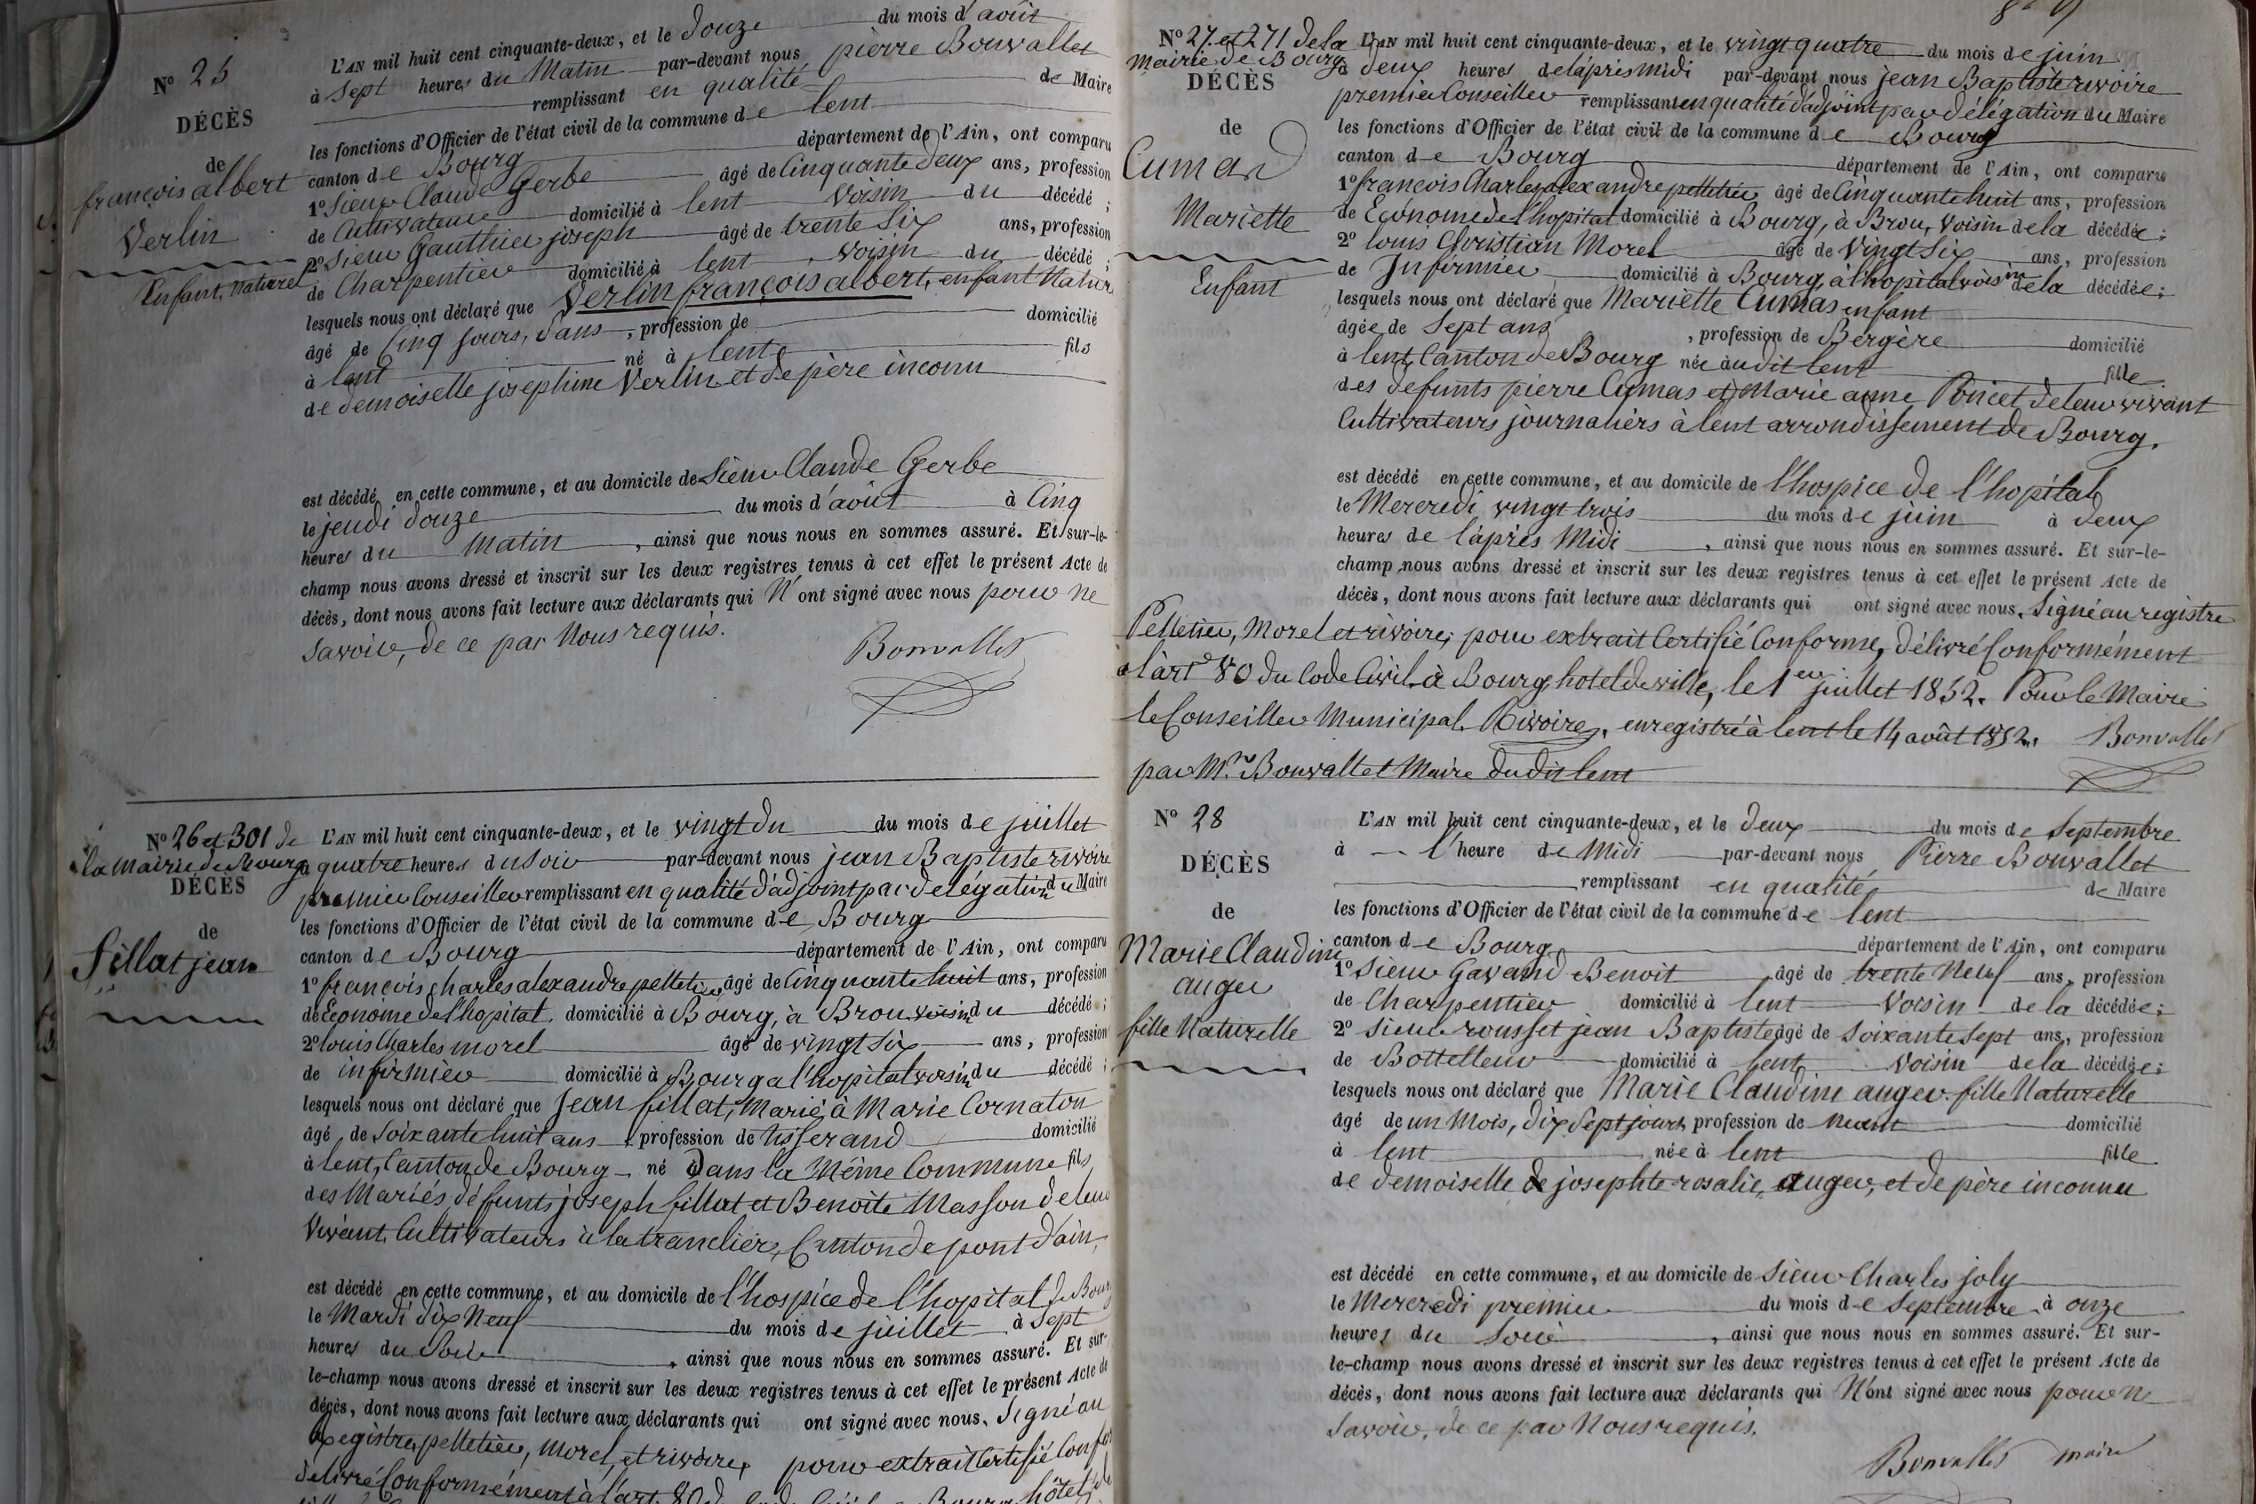 N° 25
DÉCÈS
de
françois albert
Verlin
Enfant, Naturel
L'AN mil huit cent cinquante-deux, et le douze du mois d'août
à sept heures du Matin par-devant nous pierre Bonvallet
remplissant en qualité de Maire
les fonctions d'Officier de l'état civil de la commune de lent
canton de Bourg département de l'Ain, ont comparu
1° Sieur Claude Gerbe âgé de Cinquante deux ans, profession
de Cultivateur domicilié à lent voisin du décédé ;
2° Sieur Gauthier joseph âgé de trente Six ans, profession
de Charpentier domicilié à lent voisin du décédé ;
lesquels nous ont déclaré que Verlin françois albert, enfant Natur
âgé de Cinq jours, dans , profession de domicilié
à lent né à lent fils
de demoiselle josephine Verlin et de père inconu
est décédé en cette commune, et au domicile de Sieur Claude Gerbe
le jeudi douze du mois d'août à Cinq
heures du Matin , ainsi que nous nous en sommes assuré. Et sur-le-
champ nous avons dressé et inscrit sur les deux registres tenus à cet effet le présent Acte de
décès, dont nous avons fait lecture aux déclarants qui N'ont signé avec nous pour ne
Savoir, de ce par Nous requis.
Bonvallet
N° 26 et 301 de
la Mairie de Bourg
DÉCÈS
de
fillat jean
L'AN mil huit cent cinquante-deux, et le vingt du du mois de juillet
à quatre heures du soir par-devant nous jean Baptiste rivoire
premier Conseiller remplissant en qualité d'adjoint par delégation du Maire
les fonctions d'Officier de l'état civil de la commune de Bourg
canton de Bourg département de l'Ain, ont comparu
1° françois charles alexandre pelletier âgé de Cinquante huit ans, profession
de Econome de l'hopital, domicilié à Bourg, à Brou voisin du décédé ;
2° louis Charles morel âgé de vingt Six ans, profession
de infirmier domicilié à Bourg a l'hopital voisin du décédé ;
lesquels nous ont déclaré que Jean fillat, Marié à Marie Cornaton
âgé de soixante huit ans , profession de tisserand domicilié
à lent, Canton de Bourg né à Dans la Même Commune fils
des Mariés défunts joseph fillat et Benoite Masson de leur
Vivant Cultivateurs à la tranclière, Canton de pont d'ain,
est décédé en cette commune, et au domicile de l'hospice de l'hopital de Bourg
le Mardi dix Neuf du mois de juillet à Sept
heures du Soir , ainsi que nous nous en sommes assuré. Et sur-
le-champ nous avons dressé et inscrit sur les deux registres tenus à cet effet le présent Acte de
décès, dont nous avons fait lecture aux déclarants qui ont signé avec nous, Signé au
Registre, pelletier, morel, et rivoire, pour extrait Certifié Conf
délivré Conformément à l'art 80 Bourg hôtel de
N° 27. et 271 de la
Mairie de Bourg
DÉCÈS
de
Cumas
Mariette
Enfant
L'AN mil huit cent cinquante-deux, et le vingt quatre du mois de juin
à deux heures de l'après midi par-devant nous jean Baptiste rivoire
premier Conseiller remplissant en qualité d'adjoint par délégation du Maire
les fonctions d'Officier de l'état civil de la commune de Bourg
canton de Bourg département de l'Ain, ont comparu
1° françois Charles alexandre pelletier âgé de Cinquante huit ans, profession
de Econome de l'hopital domicilié à Bourg, à Brou, Voisin de la décédée ;
2° louis Christian Morel âgé de Vingt Six ans, profession
de Infirmier domicilié à Bourg, à l'hopital voisin de la décédée ;
lesquels nous ont déclaré que Mariette Cumas enfant
âgée de Sept ans , profession de Bergère domicilié
à lent, Canton de Bourg née audit lent fille
des défunts pierre Cumas et Marie anne Poncet de leur vivant
Cultivateurs journaliers à lent arrondissement de Bourg.
est décédé en cette commune, et au domicile de l'hospice de l'hopital
le Mercredi vingt trois du mois de juin à deux
heures de l'après Midi , ainsi que nous nous en sommes assuré. Et sur-le-
champ nous avons dressé et inscrit sur les deux registres tenus à cet effet le présent Acte de
décès, dont nous avons fait lecture aux déclarants qui ont signé avec nous. Signé au registre
Pelletier, Morel et rivoire, pour extrait Certifié Conforme, délivré Conformément
à l'art 80 du Code Civil à Bourg hotel de ville, le 1er juillet 1852. Pour le Maire
le Conseiller Municipal Rivoire, enregistré à lent le 14 août 1852.
par Mr. Bonvallet Maire dudit lent
Bonvallet
N° 28
DÉCÈS
de
Marie Claudine
auger
fille Naturelle
L'AN mil huit cent cinquante-deux, et le deux du mois de Septembre
à l'heure de Midi par-devant nous Pierre Bonvallet
remplissant en qualité de Maire
les fonctions d'Officier de l'état civil de la commune de lent
canton de Bourg département de l'Ain, ont comparu
1° Sieur Gavand Benoit âgé de trente Neuf ans, profession
de Charpentier domicilié à lent Voisin de la décédée ;
2° Sieur rousset jean Baptiste âgé de Soixante sept ans, profession
de Bottelleur domicilié à lent, Voisin de la décédée ;
lesquels nous ont déclaré que Marie Claudine auger fille Naturelle
âgé de un Mois, dix Sept jours profession de Neant domicilié
à lent née à lent fille
de demoiselle de josephte rosalie, auger, et de père inconnu
est décédé en cette commune, et au domicile de Sieur Charles joly
le Mercredi premier du mois de Septembre à onze
heures du Soir , ainsi que nous nous en sommes assuré. Et sur-
le-champ nous avons dressé et inscrit sur les deux registres tenus à cet effet le présent Acte de
décès, dont nous avons fait lecture aux déclarants qui N'ont signé avec nous pour ne
Savoir, de ce par Nous requis.
Bonvallet maire